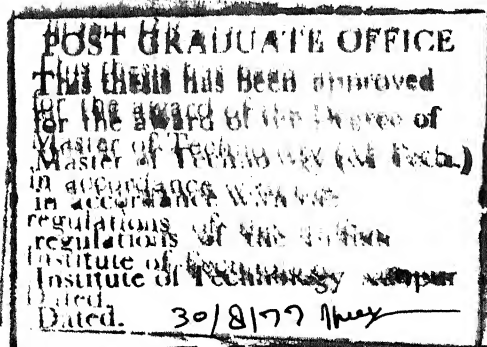 POST GRADUATE OFFICE
This thesis has been approved
for the award of the Degree of
Master of Technology (M. Tech.)
in accordance with the
regulations of the Indian
Institute of Technology Kanpur
Dated. 30/8/77